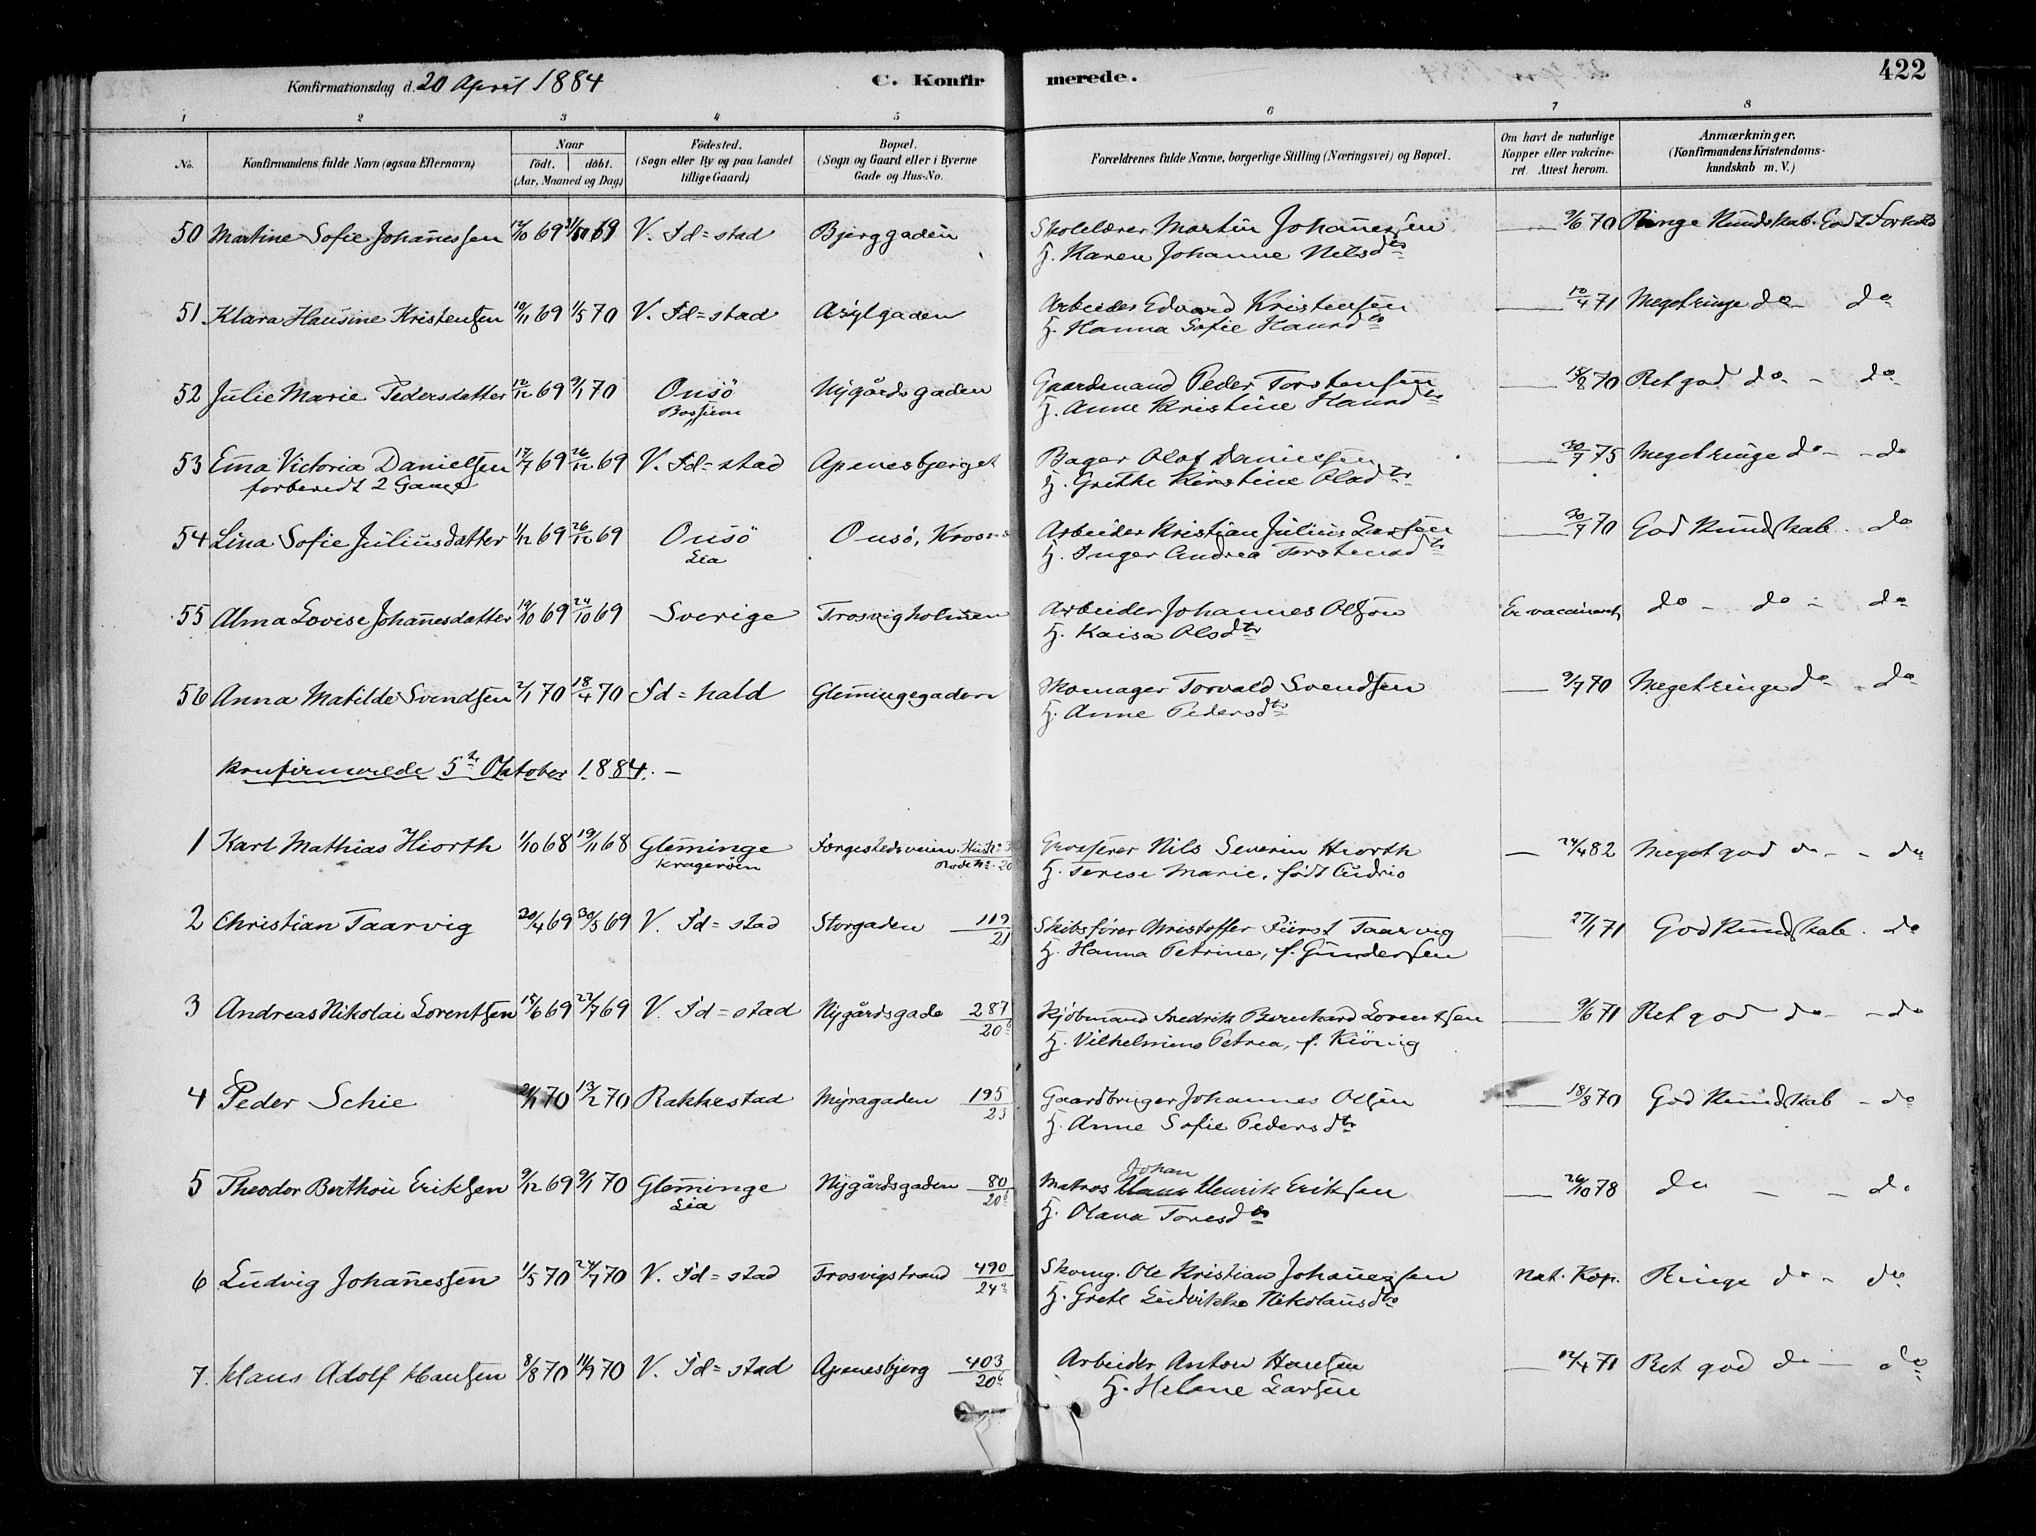 Konfirmationsdag d. 20 April 1884 C. Konfirmerede. 422
1 2 3 4 5 6 7 8
No. Konfirmandens fulde Navn (ogsaa Efternavn) Naar født. døbt. (Aar, Maaned og Dag) Fødested. (Sogn eller By og paa Landet tillige Gaard) Bopæl. (Sogn og Gaard eller i Byerne Gade og Hus-No. Forældrenes fulde Navne, borgerlige Stilling (Næringsvei) og Bopæl. Om havt de naturlige Kopper eller vakcineret. Attest herom. Anmærkninger. (Konfirmandens Kristendomskundskab m. V.)
50 Martine Sofie Johannessen 12/10 69 69 V. Fd=stad Bjerggaden Skolelærer Martin Johannessen — 9/6 70 Ringe Kundskab. Godt Forhold
H. Karen Johanne Nilsdtr
51 Klara Hansine Kristensen 10/11 69 1/5 70 V. Fd=stad Asylgaden Arbeider Edvard Kristensen — 12/4 71 Meget ringe do do
H. Hanna Sofie Hansdtr
52 Julie Marie Pedersdatter 12/12 69 9/1 70 Onsö Nygårdsgaden Gaardmand Peder Torstensen — 18/8 70 Ret god do - do
H. Anne Kristine Hansdtr
53 Ema Victoria Danielsen 17/7 69 26/12 69 V. Fd=stad Apenesbjerget Bager Olaf Danielsen — 30/7 75 Meget ringe do - - do
forberedt 2 Gange H. Grethe Kirstine Olsdtr
54 Lina Sofie Juliusdatter 1/12 69 26/12 69 Onsö Onsö, Arbeider Kristian Julius Larsen — 30/9 70 God Kundskab. do
Lia H. Inger Andrea Torstensdtr
55 Alma Lovise Johannesdatter 19/10 69 24/10 69 Sverige Trosvigholmen Arbeider Johannes Olsson Er vaccineret, do - do - do
H. Kaisa Olsdtr
56 Anna Matilde Svendsen 2/1 70 18/4 70 Fd=hald Glemmingegaden Skomager Torvald Svendsen — 9/7 70 Meget ringe do - do
H. Anne Pedersdtr
Konfirmerede 5te Oktober 1884. —
1 Karl Mathias Hiorth 1/10 68 19/11 68 Glemminge Færgestedsveien Grosserer Nils Severin Hiorth — 24/4 82 Meget god do - - do
Kragerøen H. Terese Marie, født
2 Christian Taarvig 20/4 69 30/5 69 V. Fd=stad Storgaden 119/21 Skibsfører Christoffer Fürst Taarvig — 27/1 71 God Kundskab. do
H. Hanna Petrine, f. Gundersen
3 Andreas Nikolai Lorentsen 15/6 69 27/7 69 V. Fd=stad Nygårdsgade 287/20 Kjøbmand Fredrik Bernhard Lorentsen — 9/6 71 Ret god do - - do
H. Vilhelmine Petrea, f. Kiönig
4 Peder Schie 2/1 70 13/2 70 Rakkestad Myragaden 195/23 Gaardbruger Johannes Olsen — 18/8 70 God Kundskab - do
H. Anne Sofie Pedersdtr
5 Theodor Berthou Eriksen 9/12 69 9/1 70 Glemminge Nygårdsgaden 80/20 Matros Johan Henrik Eriksen — 26/10 78 do - - do
Lia H. Olava Toresdtr
6 Ludvig Johannessen 1/5 70 24/7 70 V. Fd=stad Trosvigstrand 490/24 Skomg. Ole Kristian Johannessen Nat. Kop. Ringe do - do
H. Grete Ludvikke Nikolausdtr
7. Hans Adolf Hansen 8/8 70 11/9 70 V. Fd=stad Apenesbjerg 403/20 Arbeider Anton Hansen — 12/4 71 Ret god do - do
H. Helene Larsen